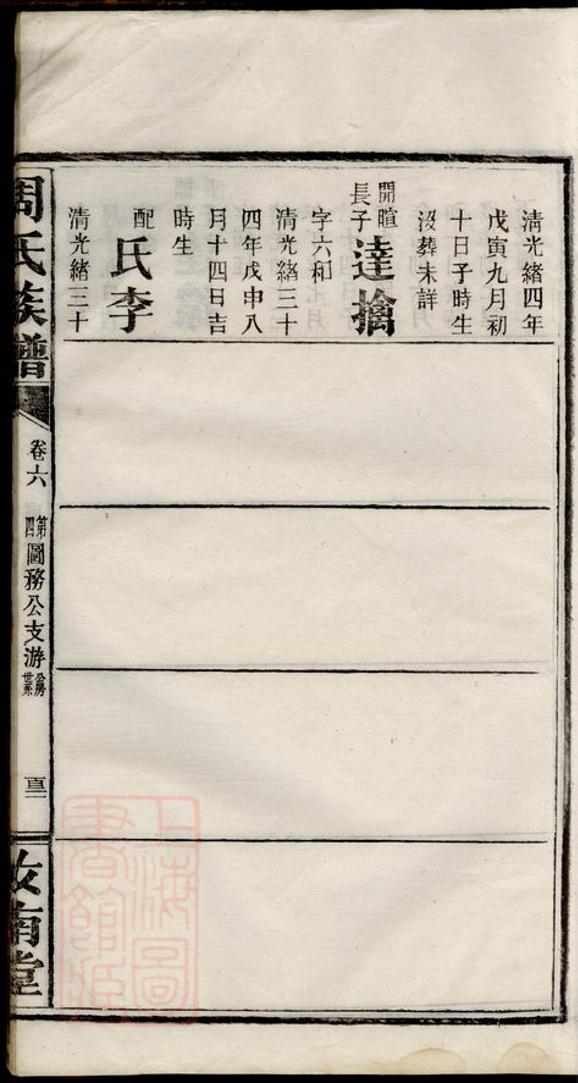 清光緒四年
戊寅九月初
十日子時生
沒葬未詳
開暄
長子
達擒
字六和
清光緒三十
四年戊申八
月十四日吉
時生
配
氏李
清光緒三十
周氏族譜
卷六
第四圖務公支游公房世系
汝南堂
上海圖書館藏